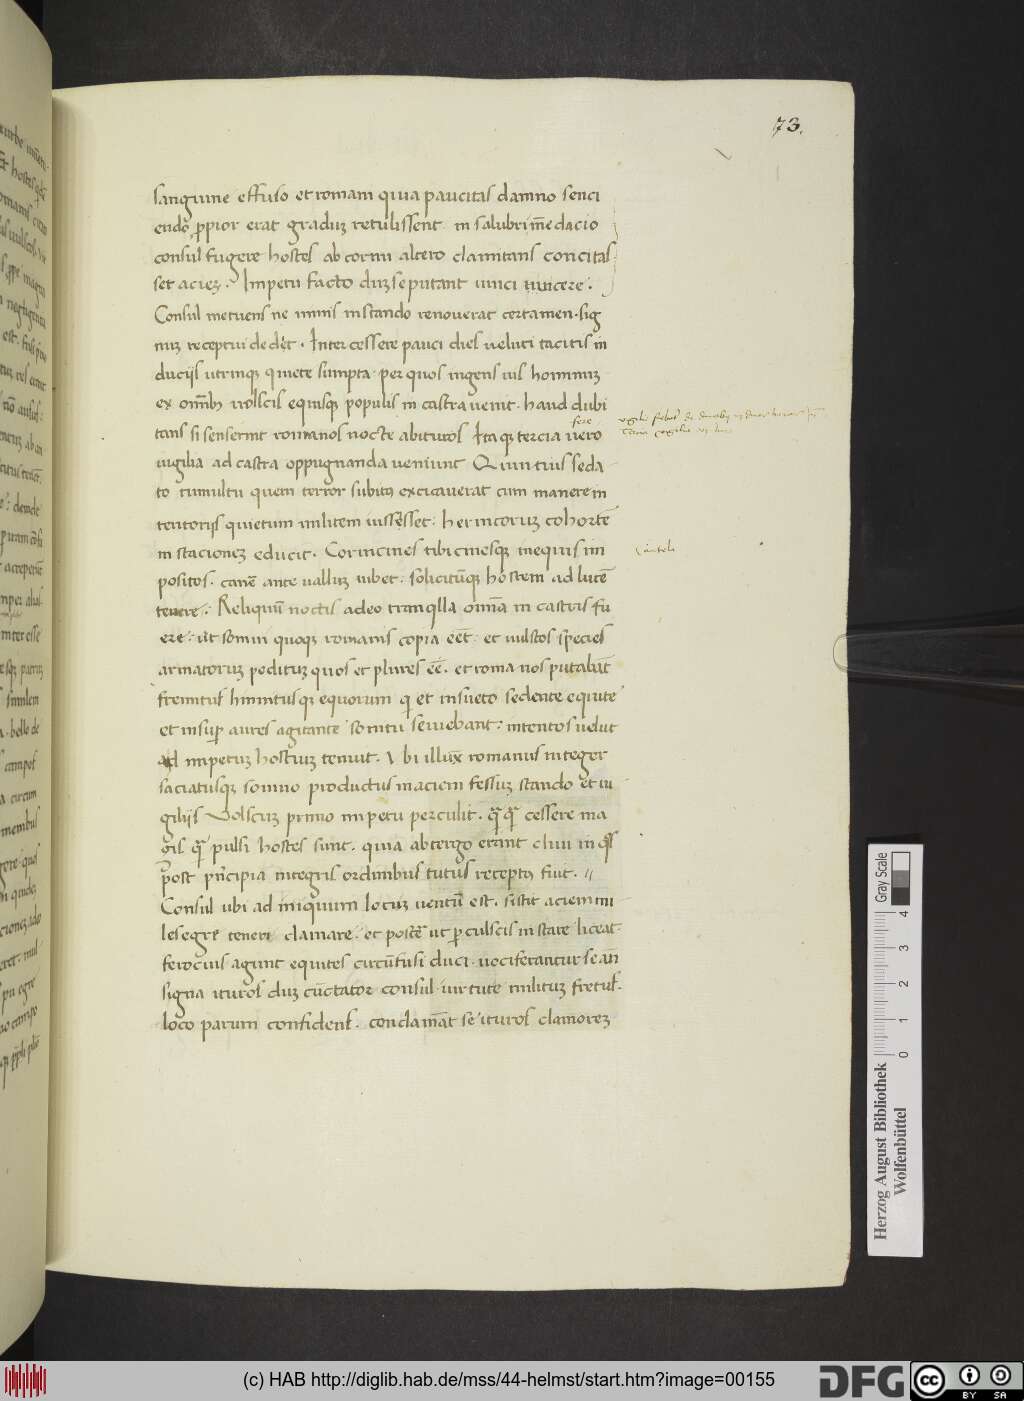 73.
sanguine effuso et romani quia paucitas damno senci
endo p̱pior erat graduꝫ retulissent in salubri m̄edacio
consul fugere hostes ab cornu altero clamitans concitas
set acieꝫ. Impetu facto duꝫ se putant uinci uincere.
Consul metuens ne nimis instando renouerat certamen. sig
nuꝫ receptui dedēt. Intercessere pauci dies ueluti tacitis in
duciis utrinqꝫ quiete sumpta. per quos ingens uis hominuꝫ
ex om̄ibꝫ uolscis equisqꝫ populis in castra uenit. haud dubi
tans si senserint romanos nocte abituros Itaqꝫ tercia fere uero
uigilia ad castra oppugnanda ueniunt Quintius seda
to tumultu quem terror subitꝫ excitauerat cum manere in
tentoriis quietum militem iussisset. hernicoruꝫ cohortē
in stacioneꝫ educit. Cornicines tibicinesqꝫ in equis im
positos. canē ante ualluꝫ iubet. solicitūqꝫ hostem ad lucē
tenere. Reliquū noctis adeo tranqlla om̄a in castris fu
ere. ut somni quoqꝫ romanis copia eēt. et uulscos species
armatoruꝫ pedituꝫ quos et plures eē. et romanos putabāt
fremitus hinnitusqꝫ equorum qi et insueto sedente equite
et insup̱ aures agitante sonitu seruebant. intentos uelut
ad impetuꝫ hostiuꝫ tenuit. Vbi illuxͫ romanus integer
saciatusqꝫ somno productus in aciem fessuꝫ stando et ui
giliis Volscuꝫ primo impetu perculit. qꝫqꝫ cessere ma
gis qꝫ pulsi hostes sunt. quia ab tergo erant cliui in qs
post pn̄cipia integris ordinibus tutus receptꝫ fuit.
Consul ubi ad iniquum locuꝫ uentū est. sistit aciem mi
les egre teneri clamare. et poscē ut p̱culscis instare liceat.
ferocius agunt equites circūfusi duci. uociferantur se an̄
signa ituros duꝫ cūctator consul. uirtute milituꝫ fretus.
loco parum confidens. conclamāt se ituros clamoreꝫ
Herzog August Bibliothek
Wolfenbüttel
Gray Scale
0 1 2 3 4
(c) HAB http://diglib.hab.de/mss/44-helmst/start.htm?image=00155
DFG
cc BY SA